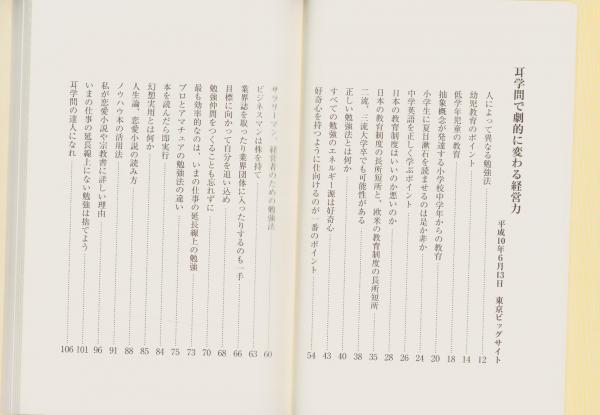 耳学問で劇的に変わる経営力
平成10年6月13日 東京ビッグサイト
人によって異なる勉強法 12
幼児教育のポイント 14
低学年児童の教育 18
抽象概念が発達する小学校中学年からの教育 20
小学生に夏目漱石を読ませるのは是か非か 24
中学英語を正しく学ぶポイント 26
日本の教育制度はいいのか悪いのか 28
日本の教育制度の長所短所と、欧米の教育制度の長所短所 35
二流、三流大学卒でも可能性がある 38
正しい勉強法とは何か 40
すべての勉強のエネルギー源は好奇心 43
好奇心を持つように仕向けるのが一番のポイント 54
サラリーマン、経営者のための勉強法 60
ビジネスマンは株を持て 63
業界誌を取ったり業界団体に入ったりするのも一手 66
目標に向かって自分を追い込め 68
勉強仲間をつくることも忘れずに 70
最も効率的なのは、いまの仕事の延長線上の勉強 73
プロとアマチュアの勉強法の違い 75
本を読んだら即実行 84
幻想実用とは何か 85
人生論、恋愛小説の読み方 88
ノウハウ本の活用法 91
私が恋愛小説や宗教書に詳しい理由 96
いまの仕事の延長線上にない勉強は捨てよう 101
耳学問の達人になれ 106